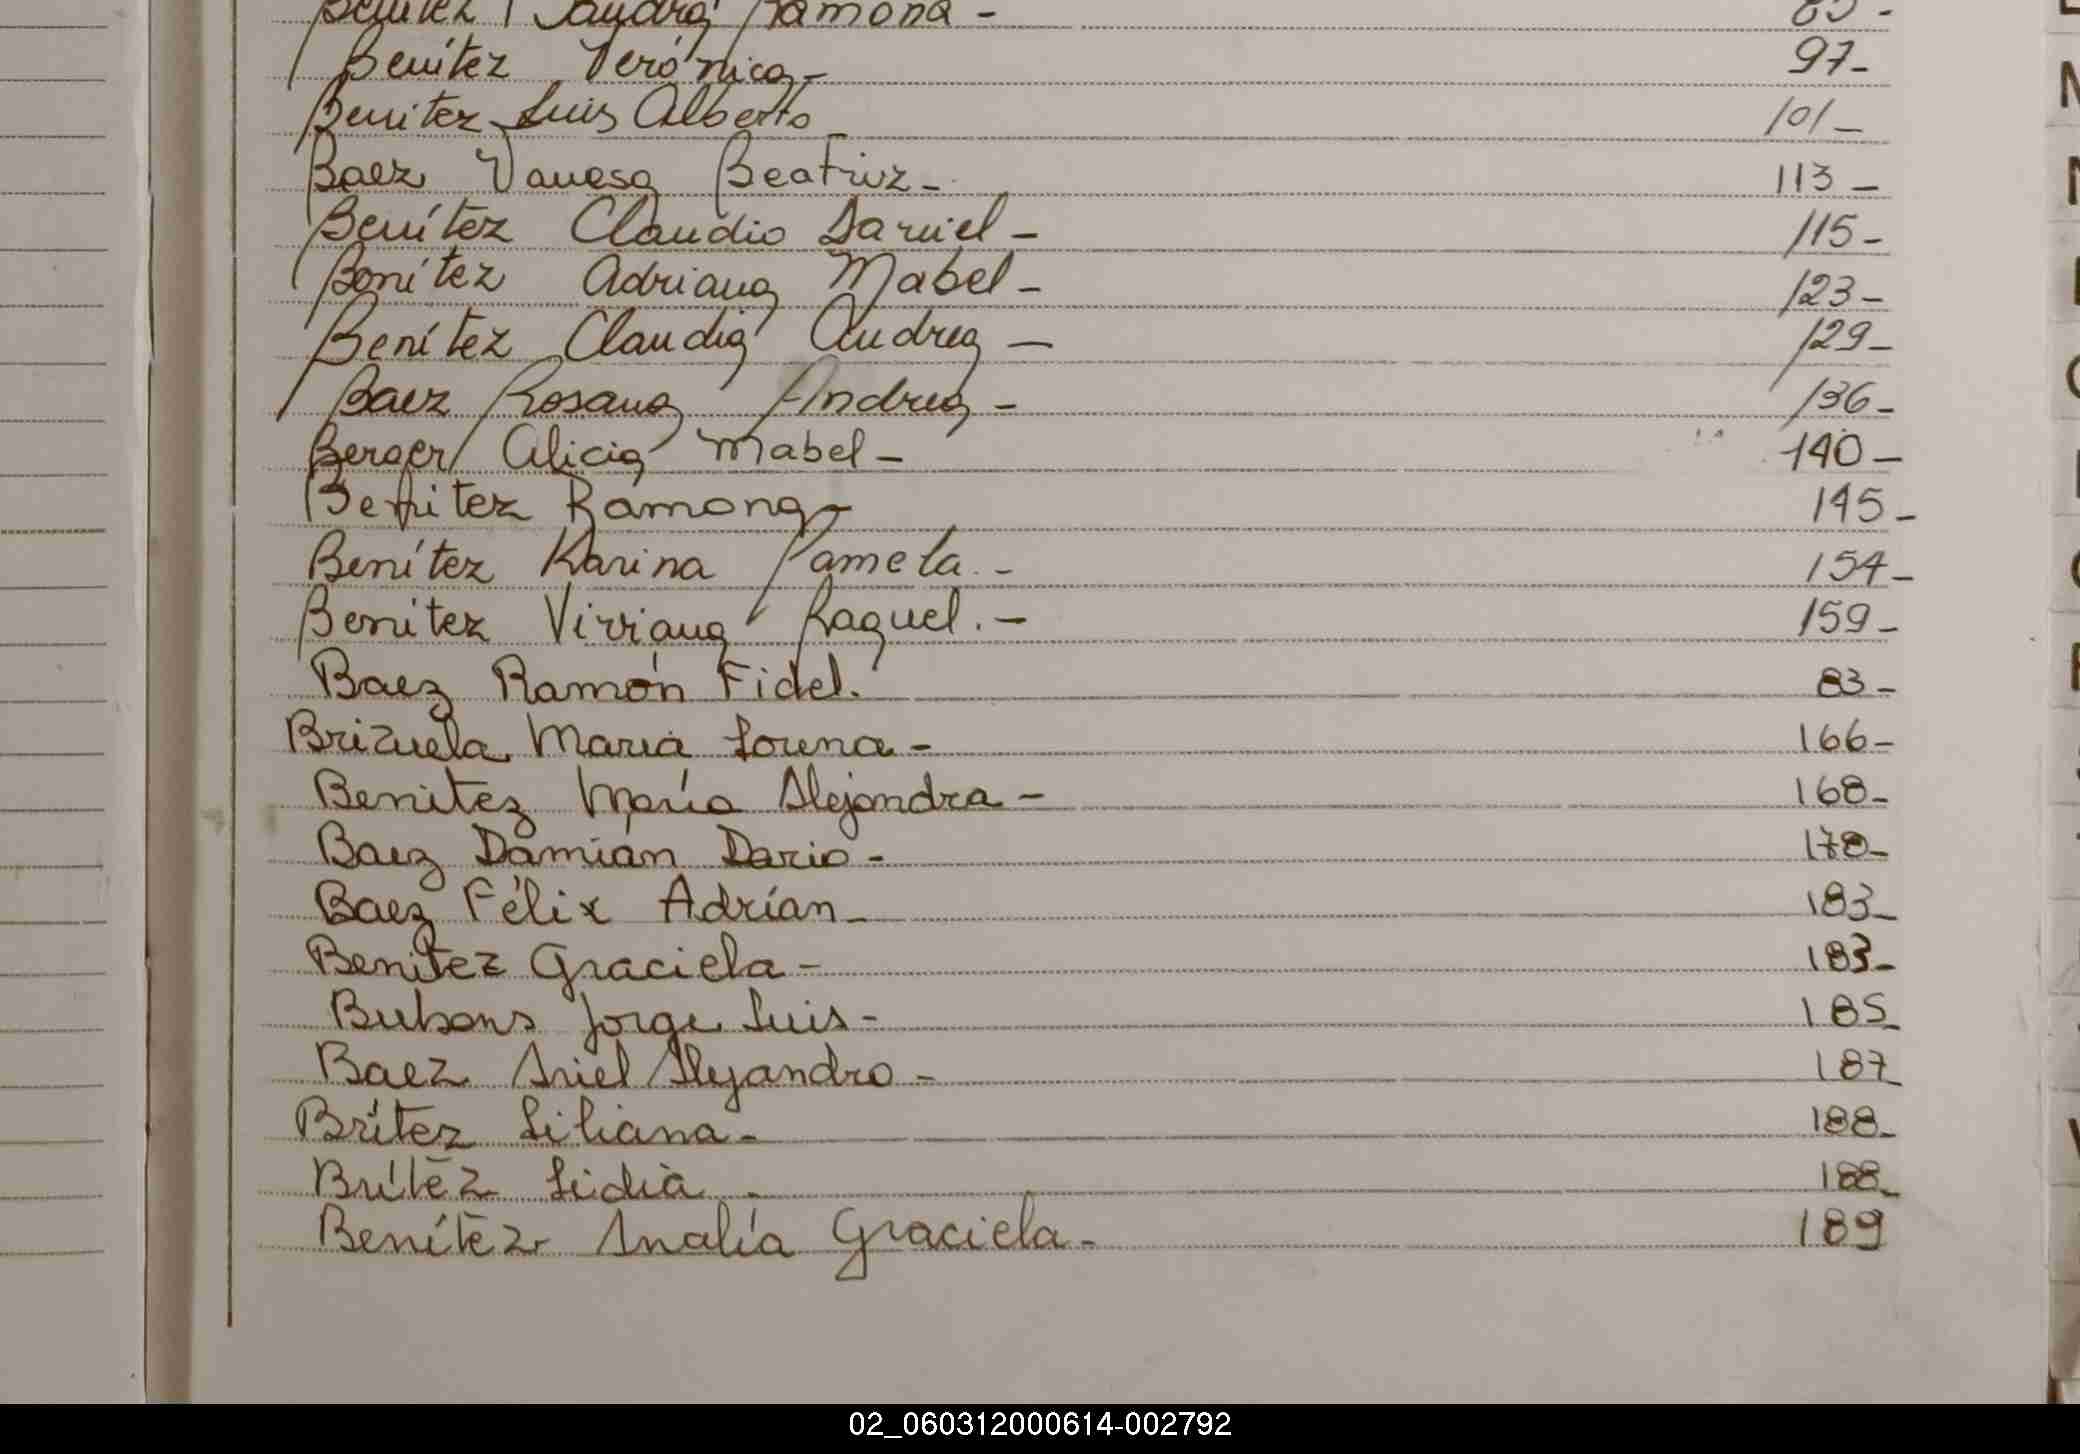 Benítez Sandra Ramona -
Benítez Verónica - 97 -
Benitez Luis Alberto - 101 -
Baez Vanesa Beatriz - 113 -
Benítez Claudio Daniel - 115 -
Benítez Adriana Mabel - 123 -
Benítez Claudia Andrea - 129 -
Baez Rosana Andrea - 136 -
Berger Alicia Mabel - 140 -
Benitez Ramona - 145 -
Benítez Karina Pamela. - 154 -
Benítez Viviana Raquel. - 159 -
Baez Ramón Fidel. 83 -
Brizuela María Lorena - 166 -
Benitez María Alejandra - 168 -
Baez Damián Dario - 178 -
Baez Félix Adrían - 183 -
Benitez Graciela - 183 -
Jorge Luis - 185 -
Baez Ariel Alejandro - 187 -
Brítez Liliana - 188 -
Brítez Lidia - 188 -
Benítez Analía Graciela - 189
02_060312000614-002792